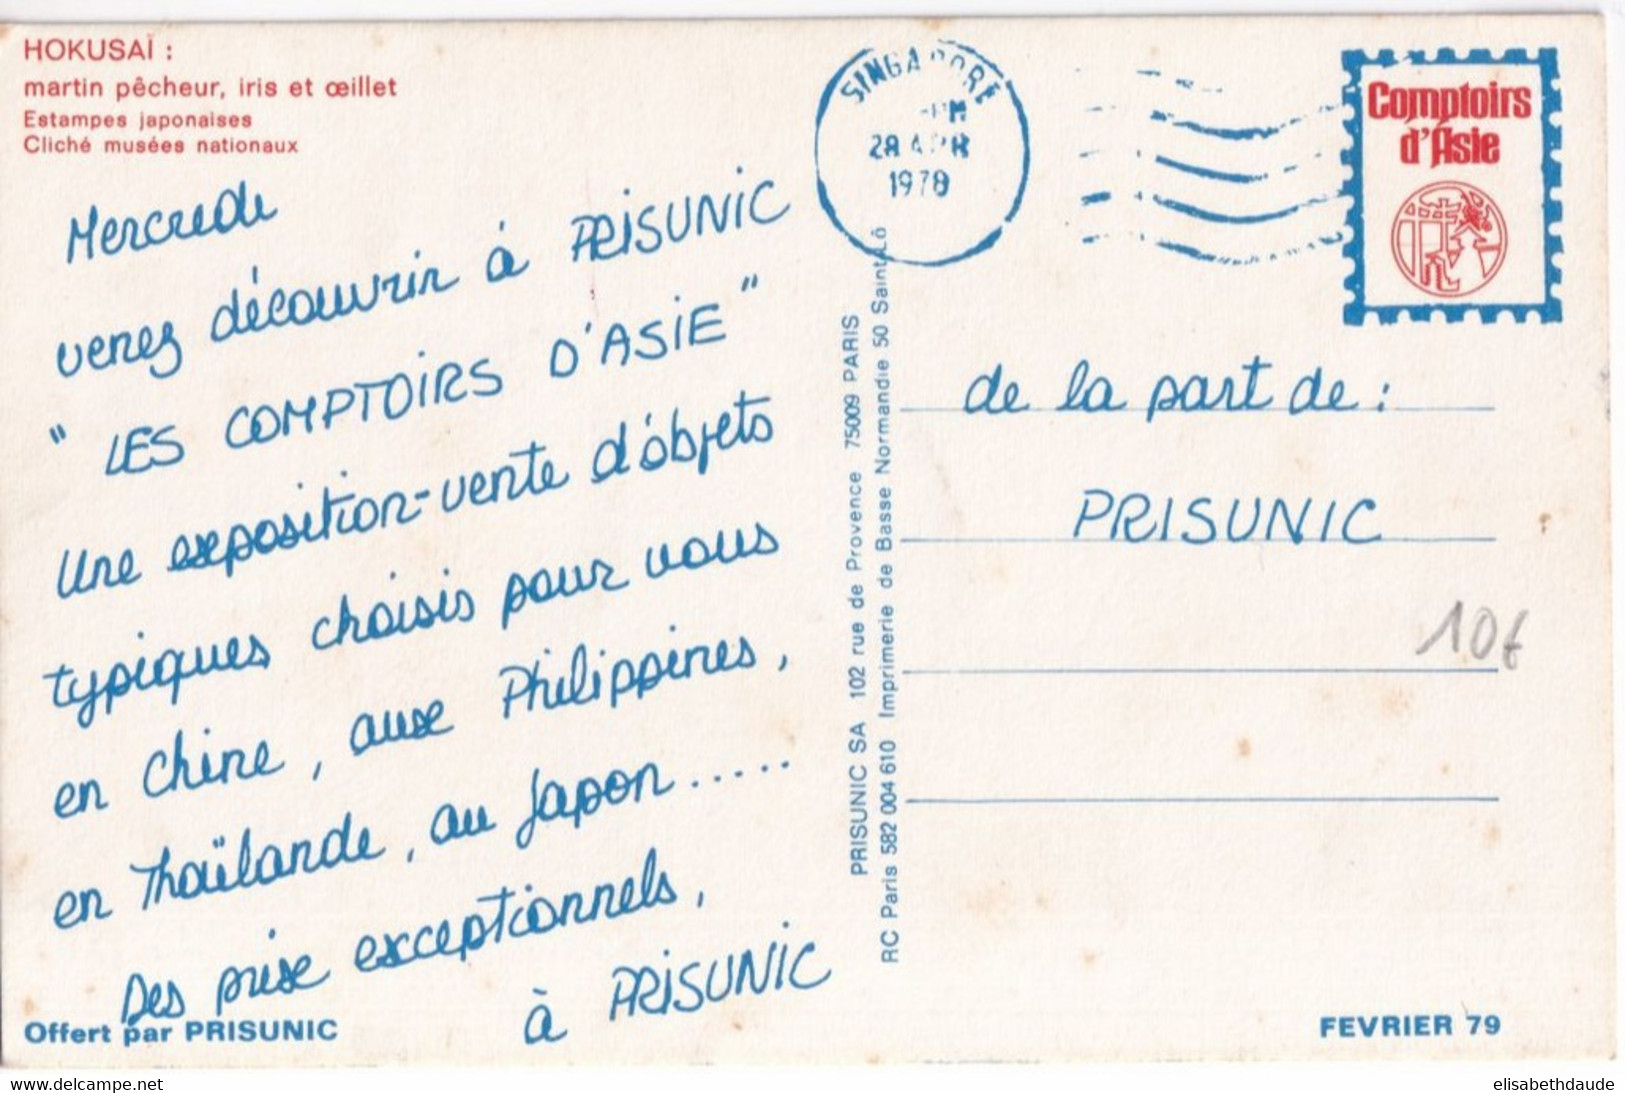 HOKUSAÏ :
martin pêcheur, iris et œillet
Estampes japonaises
Cliché musées nationaux
Mercredi
venez découvrir à PRISUNIC
" LES COMPTOIRS D'ASIE "
Une exposition-vente d'objets
typiques choisis pour vous
en Chine, aux Philippines,
en Thaïlande, au Japon.....
Des prix exceptionnels,
à PRISUNIC
Offert par PRISUNIC
PRISUNIC SA 102 rue de Provence 75009 PARIS
RC Paris 582 004 610 Imprimerie de Basse Normandie 50 Saint-Lô
SINGAPORE
PM
28 APR
1978
Comptoirs
d'Asie
de la part de :
PRISUNIC
10€
FEVRIER 79
www.delcampe.net
elisabethdaude